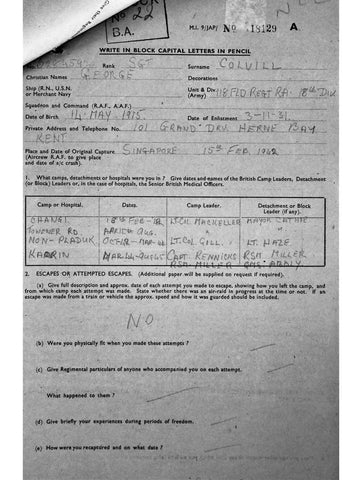 No 22
B.A.
M.I. 9/JAP/ No 18129 A
WRITE IN BLOCK CAPITAL LETTERS IN PENCIL
Rank SGT Surname COLVILL
Christian Names GEORGE Decorations
Ship (R.N., U.S.N. or Merchant Navy Unit & Div. (Army) 118 FLD REGT RA. 18th DIV
Squadron and Command (R.A.F., A.A.F.)
Date of Birth 14 MAY 1915. Date of Enlistment 3-11-31.
Private Address and Telephone No. 101 GRAND DRV. HERNE BAY
KENT
Place and Date of Original Capture SINGAPORE 15th FEB. 1942
(Aircrew R.A.F. to give place
and date of a/c crash).
1. What camps, detachments or hospitals were you in? Give dates and names of the British Camp Leaders, Detachment
(or Block) Leaders or, in the case of hospitals, the Senior British Medical Officers.
Camp or Hospital. Dates. Camp Leader. Detachment or Block Leader (if any).
CHANGI 18th FEB-42 LT.COL MACKELLER MAYOR
RD. AUG.
NON-PLADUK OCT/42-MAR-44 LT.COL GILL. LT. HAZE
MAR.44-AUG45 CAPT RENNICKS RSM MILLER
RSM MILLER
2. ESCAPES OR ATTEMPTED ESCAPES. (Additional paper will be supplied on request if required).
(a) Give full description and approx. date of each attempt you made to escape, showing how you left the camp, and
from which camp each attempt was made. State whether there was an air-raid in progress at the time or not. If an
escape was made from a train or vehicle the approx. speed and how it was guarded should be included.
NO
(b) Were you physically fit when you made these attempts ?
(c) Give Regimental particulars of anyone who accompanied you on each attempt.
What happened to them ?
(d) Give briefly your experiences during periods of freedom.
(e) How were you recaptured and on what date ?